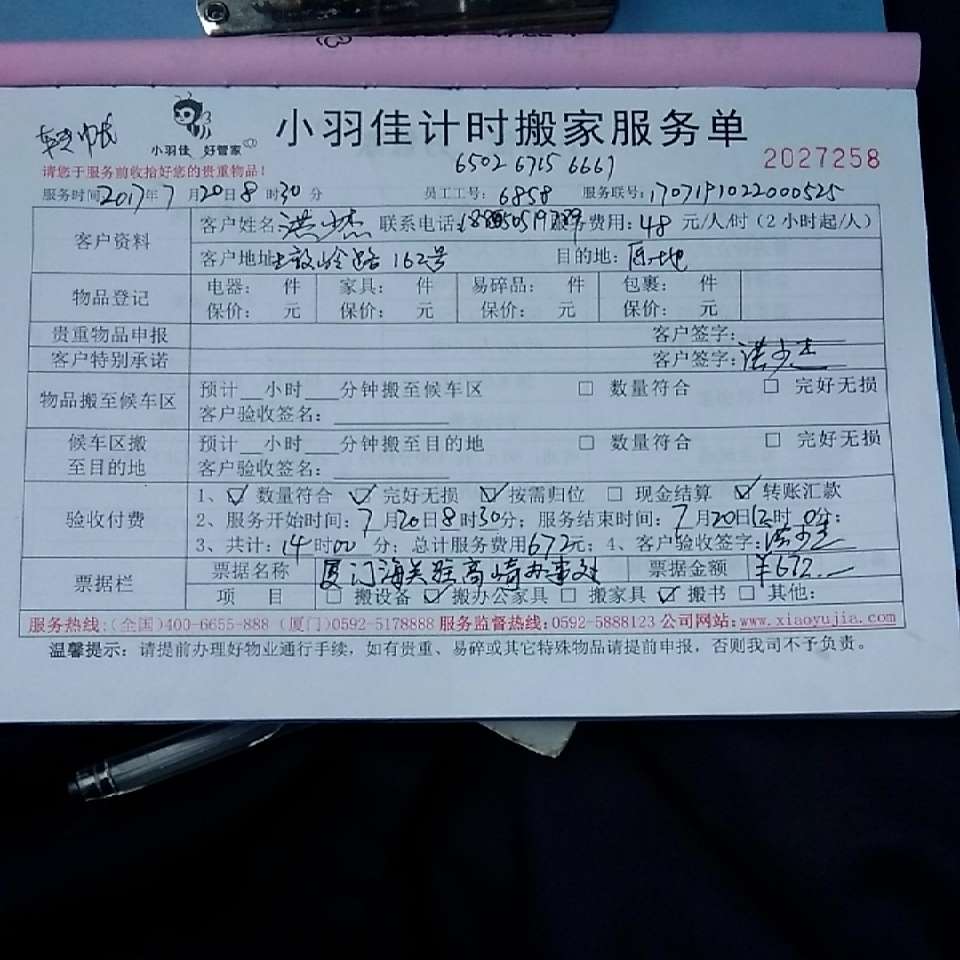 小羽佳计时搬家服务单
转账
小羽佳 好管家
6502 6715 6667
2027258
请您于服务前收拾好您的贵重物品!
服务时间2017年7月20日8时30分 员工工号: 6858 服务联号: 1707191022000525
客户资料
客户姓名: 洪少杰 联系电话: 服务费用: 48 元/人/时 (2小时起/人)
客户地址: 岭路162号 目的地: 原地
物品登记
电器: 件 家具: 件 易碎品: 件 包裹: 件
保价: 元 保价: 元 保价: 元 保价: 元
贵重物品申报 客户签字:
客户特别承诺 客户签字: 洪少杰
物品搬至候车区
预计__小时___分钟搬至候车区 □ 数量符合 □ 完好无损
客户验收签名:
候车区搬至目的地
预计__小时___分钟搬至目的地 □ 数量符合 □ 完好无损
客户验收签名:
验收付费
1、☑ 数量符合 ☑ 完好无损 ☑ 按需归位 □ 现金结算 ☑ 转账汇款
2、服务开始时间: 7月20日8时30分; 服务结束时间: 7月20日12时0分;
3、共计: 14时00分; 总计服务费用672元; 4、客户验收签字: 洪少杰
票据栏
票据名称 厦门海关驻高崎办事处 票据金额 ¥672.—
项 目 □ 搬设备 ☑ 搬办公家具 □ 搬家具 ☑ 搬书 □ 其他:
服务热线:(全国)400-6655-888 (厦门)0592-5178888 服务监督热线:0592-5888123 公司网站:www.xiaoyujia.com
温馨提示: 请提前办理好物业通行手续, 如有贵重、易碎或其它特殊物品请提前申报, 否则我司不予负责。